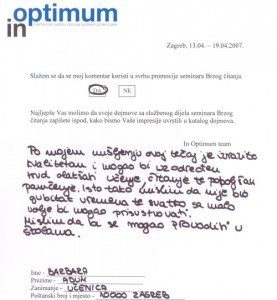 in optimum
Zagreb, 13.04. – 19.04.2007.
Slažem se da se moj komentar koristi u svrhu promocije seminara Brzog čitanja.
DA NE
Najljepše Vas molimo da svoje dojmove sa službenog dijela seminara Brzog
čitanja zapišete ispod, kako bismo Vaše impresije uvrstili u katalog dojmova.
In Optimum team
Po mojem mišljenju ovaj tečaj je izrazito
kvalitetan i mogao bi uz određen
trud olakšati učenje, čitanje te poboljšati
pamćenje. Isto tako mislim da nije bio
gubitak vremena te svatko sa malo
volje bi mogao prisustvovati.
Mislim da bi se mogao "provoditi" u
školama.
Ime - BARBARA
Prezime - ADUM
Zanimanje - UČENICA
Poštanski broj i mjesto - 10000 ZAGREB